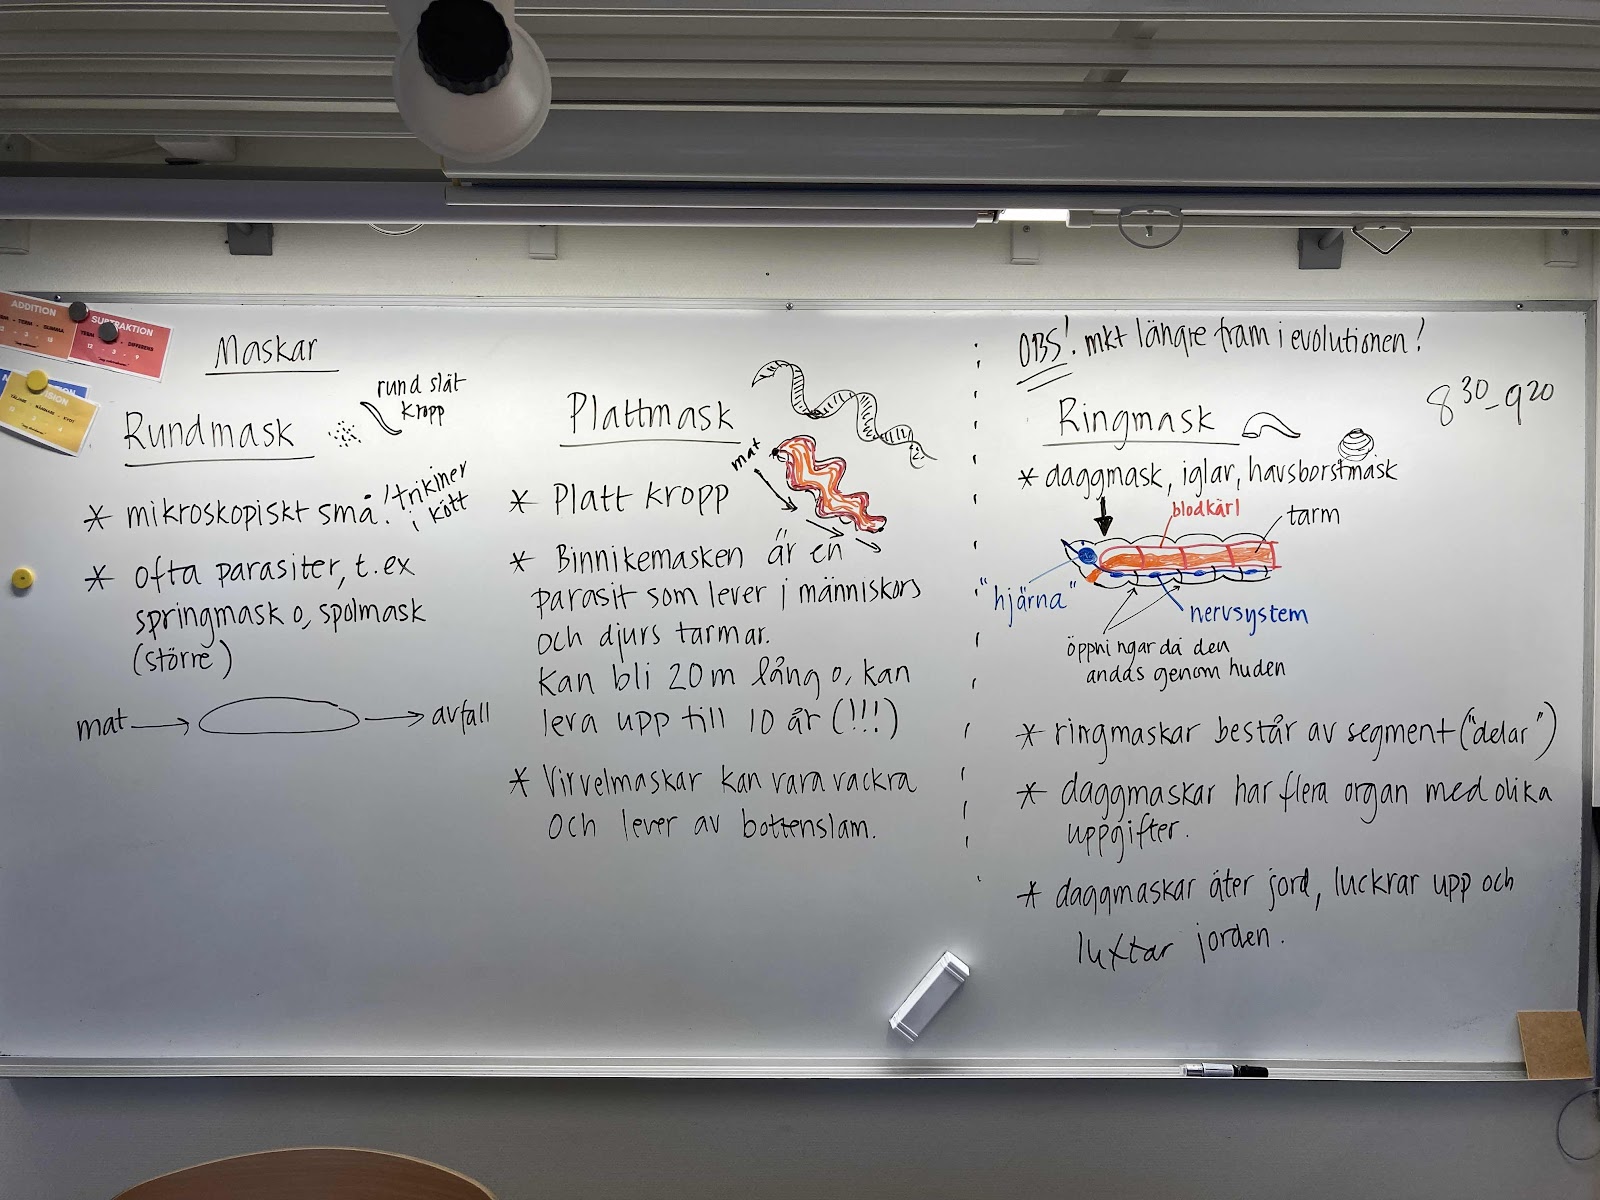 ADDITION
SUBTRAKTION
Maskar
rund slät
kropp
Rundmask
* mikroskopiskt små! trikiner
i kött
* ofta parasiter, t.ex
springmask o, spolmask
(större)
mat → avfall
Plattmask
mat
* Platt kropp
* Binnikemasken är en
parasit som lever i människors
och djurs tarmar.
Kan bli 20 m lång o, kan
leva upp till 10 år (!!!)
* Virvelmaskar kan vara vackra
och lever av bottenslam.
OBS! mkt längre fram i evolutionen!
8 30 - 9 20
Ringmask
* daggmask, iglar, havsborstmask
blodkärl
tarm
"hjärna"
nervsystem
öppningar då den
andas genom huden
* ringmaskar består av segment ("delar")
* daggmaskar har flera organ med olika
uppgifter.
* daggmaskar äter jord, luckrar upp och
luktar jorden.